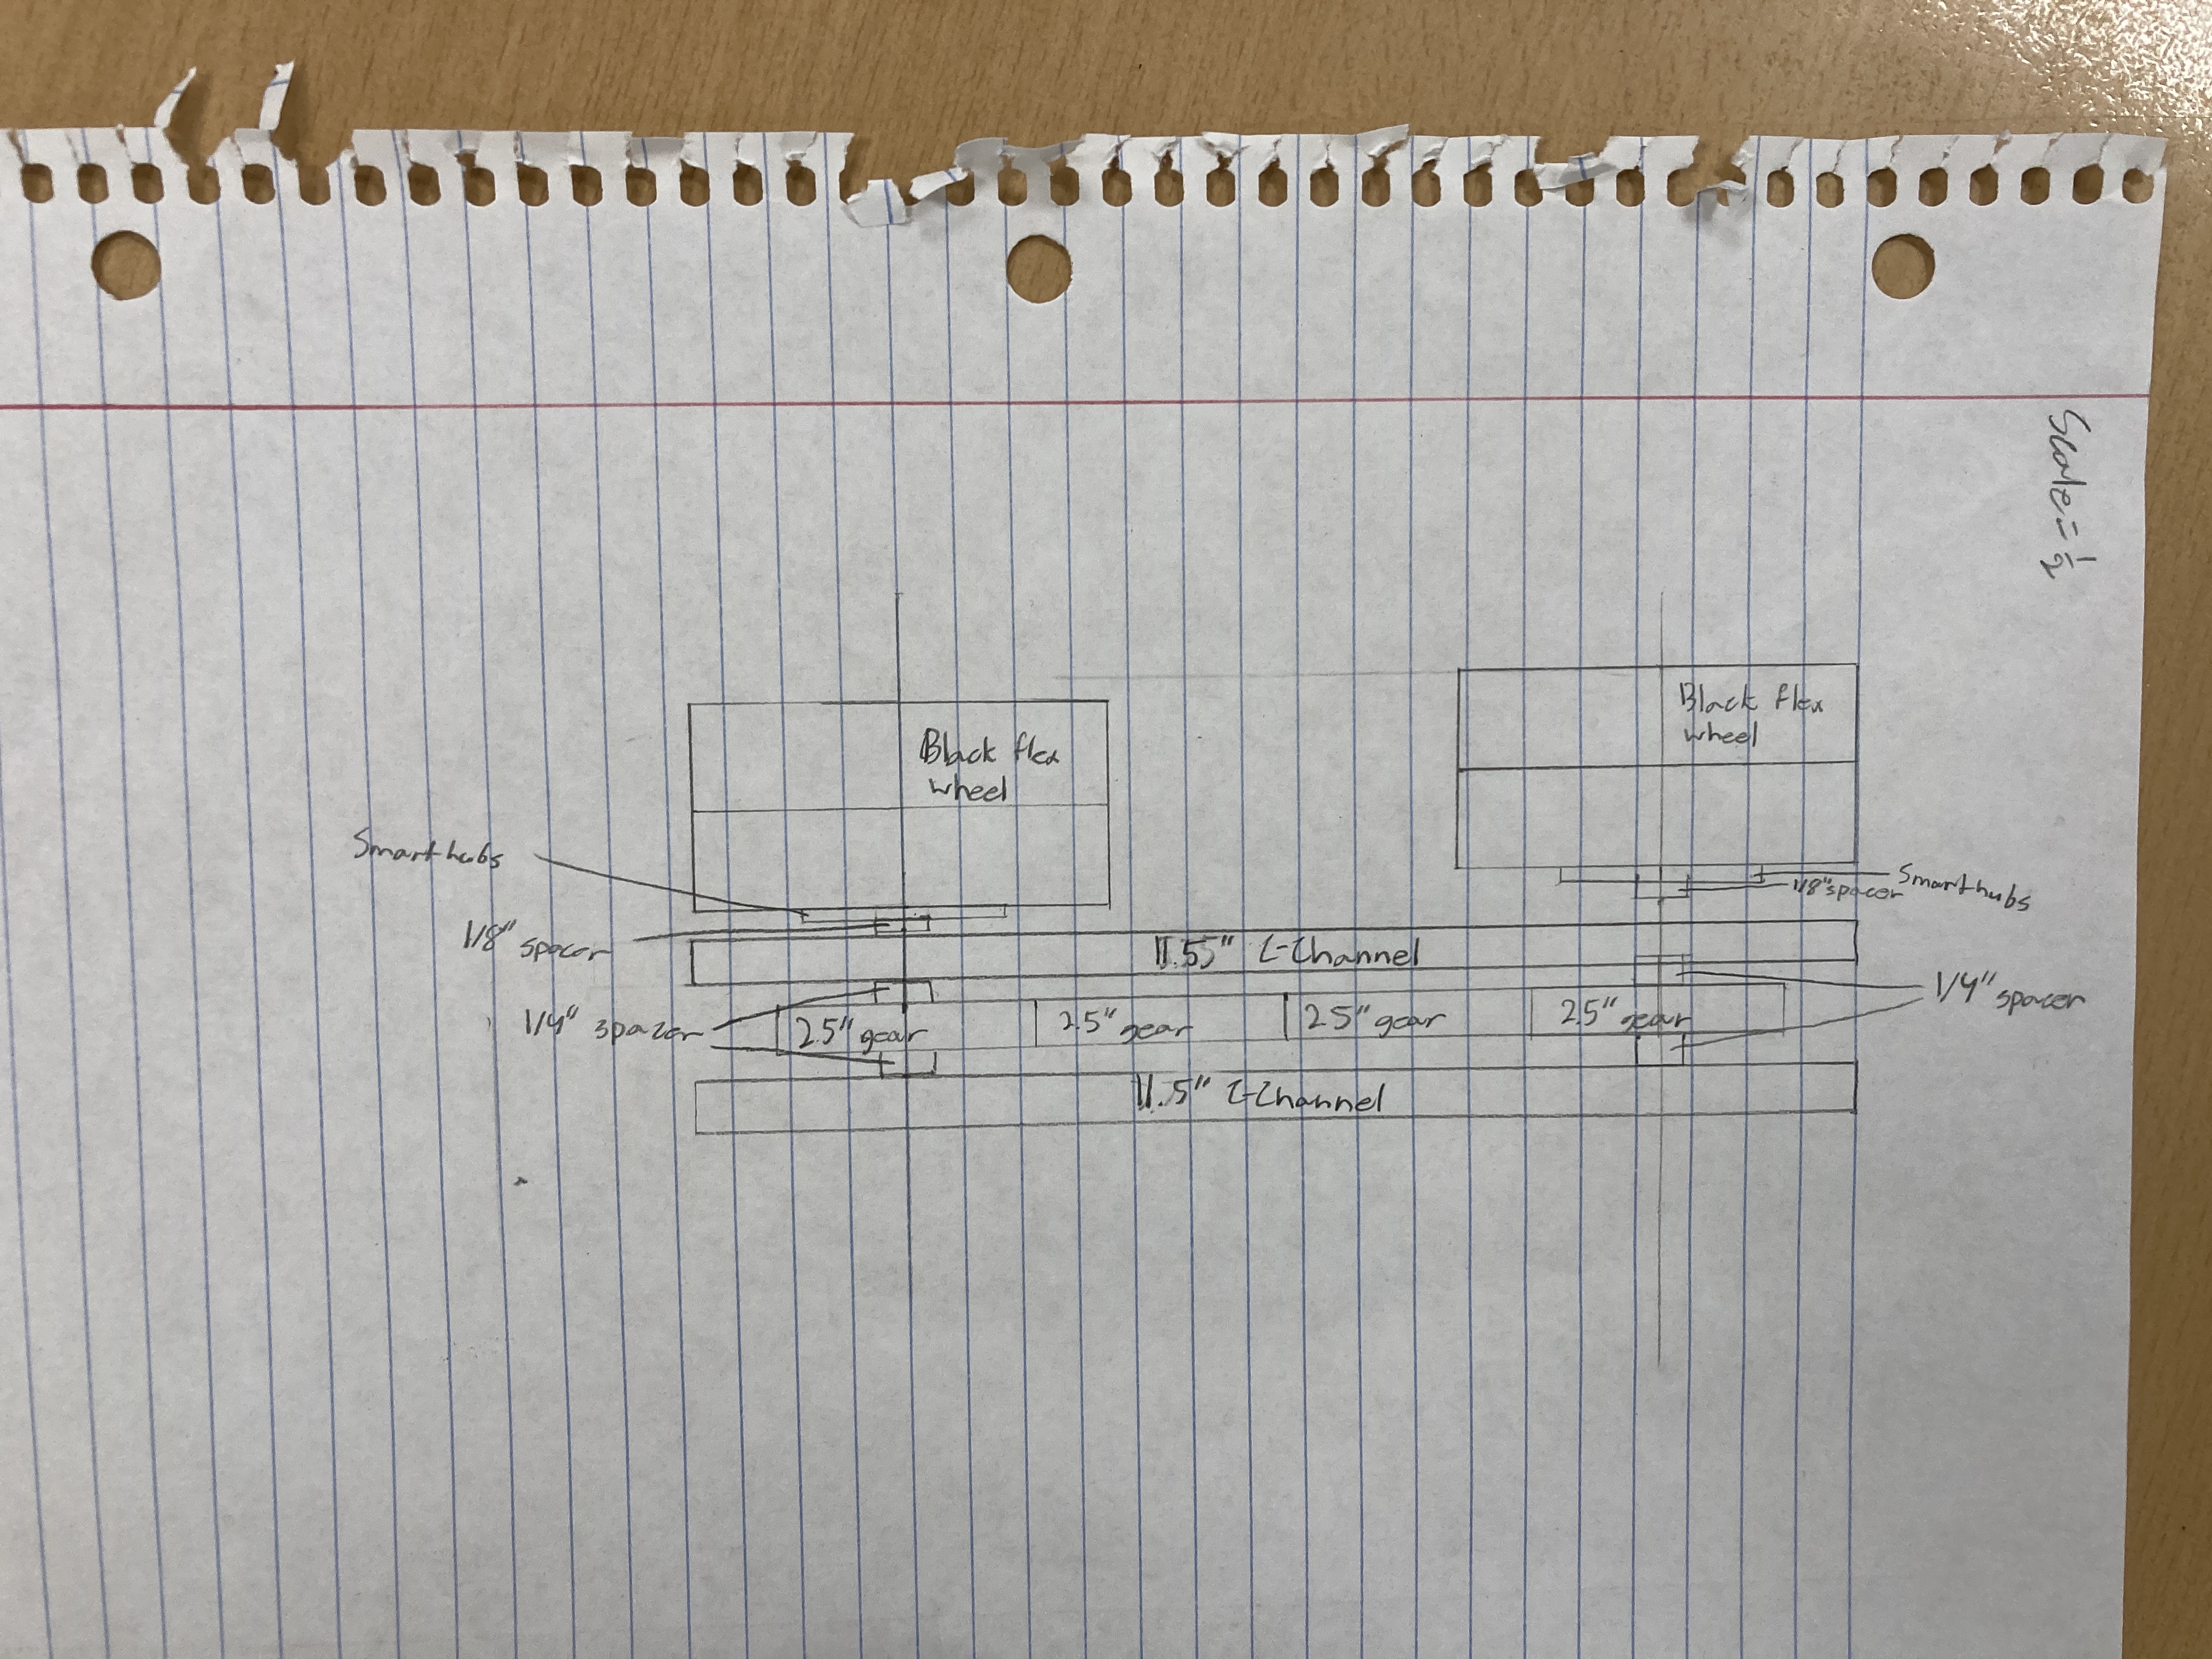 Scale = 1/2
Black flex
wheel
Black flex
wheel
Smart hubs
1/8" spacer
Smart hubs
1/8" spacer
11.55" C-Channel
1/4" spacer
1/4" spacer
2.5" gear
2.5" gear
2.5" gear
2.5" gear
11.5" C-Channel